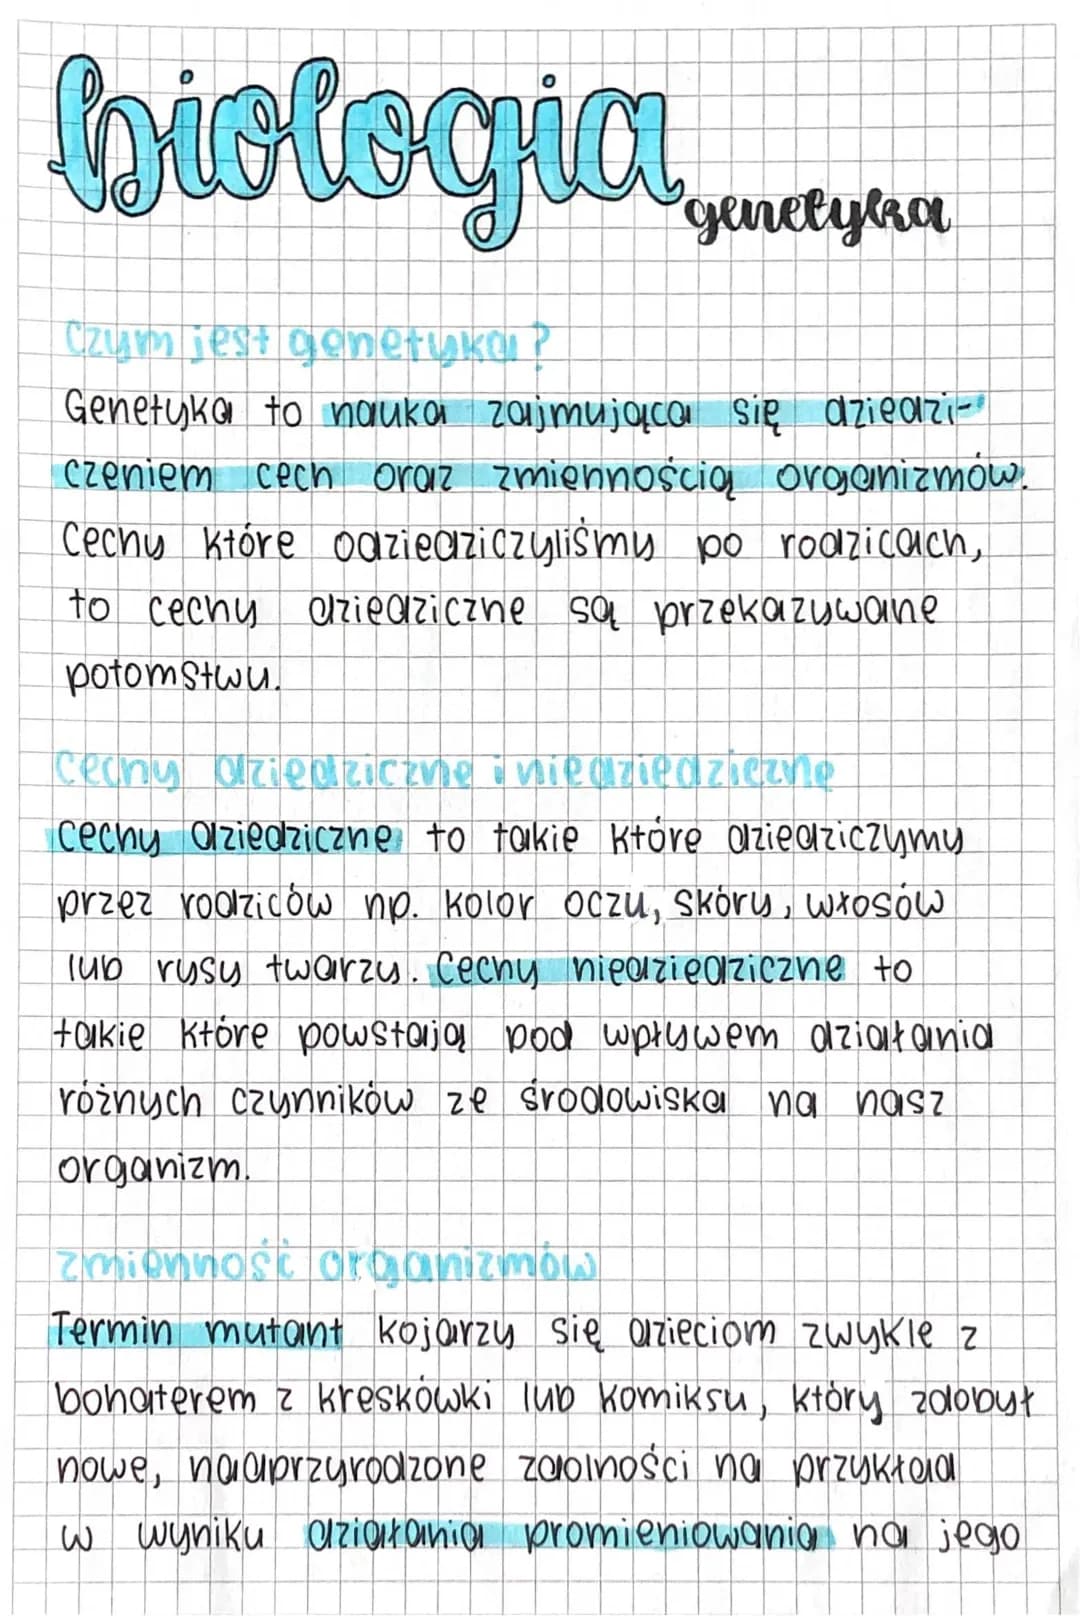 biologia
genetyka
Czym jest genetyka?
Genetyka to nauka zajmująca się dziedzi-
czeniem cech oraz zmiennością organizmów.
Cechy które odziedziczyliśmy po rodzicach,
to cechy dziedziczne są przekazywane
potomstwu.
Cechy dziedziczne i niedziedziczne
Cechy dziedziczne to takie które dziedziczymy
przez rodziców np. kolor oczu, skóry, włosów
lub rysy twarzy. Cechy niedziedziczne to
takie które powstają pod wpływem działania
różnych czynników ze środowiska na nasz
organizm.
zmienność organizmów
Termin mutant kojarzy się dzieciom zwykle z
bohaterem z kreskówki lub komiksu, który zdobył
nowe, nadprzyrodzone zdolności na przykład
w wyniku działania promieniowania na jego